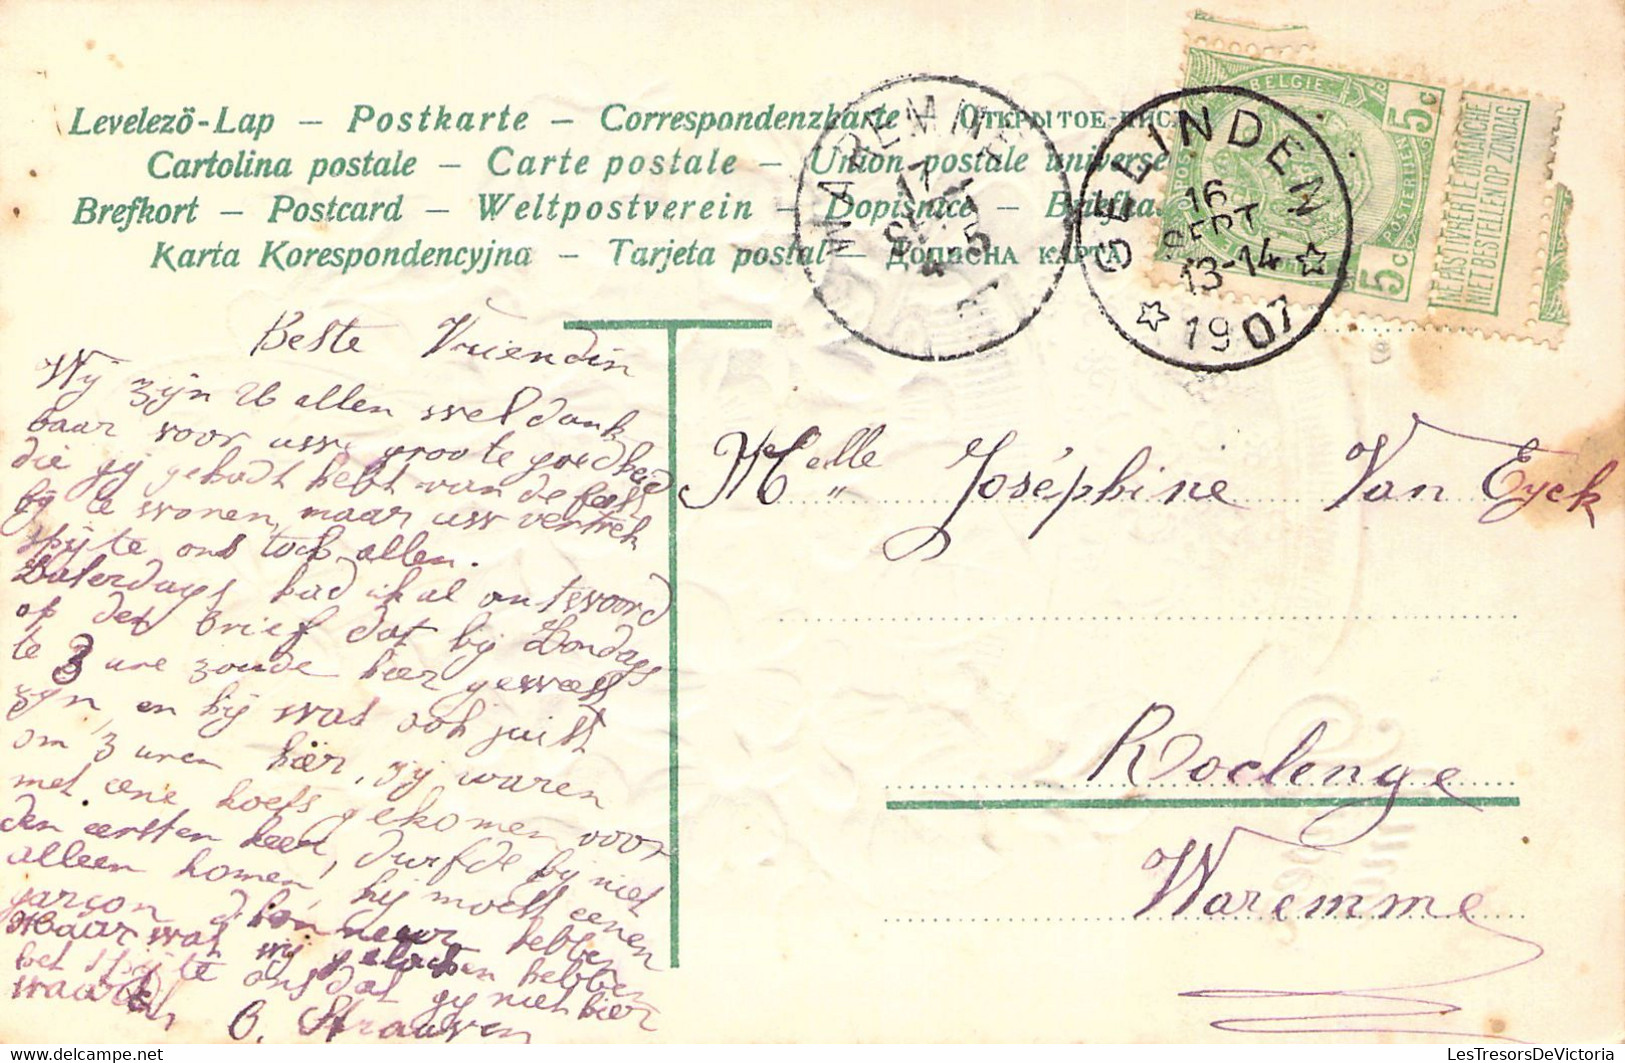 Levelező-Lap – Postkarte – Correspondenzkarte – Открытое
Cartolina postale – Carte postale – Union postale universe
Brefkort – Postcard – Weltpostverein – Dopisnice – Brifka
Karta Korespondencyjna – Tarjeta postal – Дописна карта
WAREMME
17
5
GELINDEN
16
SEPT
13-14
1907
BELGIE
5c
5c
NE PAS LIVRER LE DIMANCHE
NIET BESTELLEN OP ZONDAG
Beste Vriendin
Wij zijn U allen wel dank
baar voor uwe groote goedheid
die gij gehadt hebt van de feest
bij te wonen, maar uw vertrek
spijte ons toch allen.
Zaterdags had ik al antwoord
op den brief dat hij Zondags
te 3 ure zoude hier geweest
zijn, en hij was ook juist
om 3 uren hier, zij waren
met eene koets gekomen voor
den eersten keer, durfde hij niet
alleen komen, hij moest eenen
garçon d'honneur hebben
Maar wat wij gelachen hebben
het spijte ons dat gij niet hier
waart
O. Strauven
Melle Joséphine Van Eyck
Roclenge
Waremme
LesTresorsDeVictoria